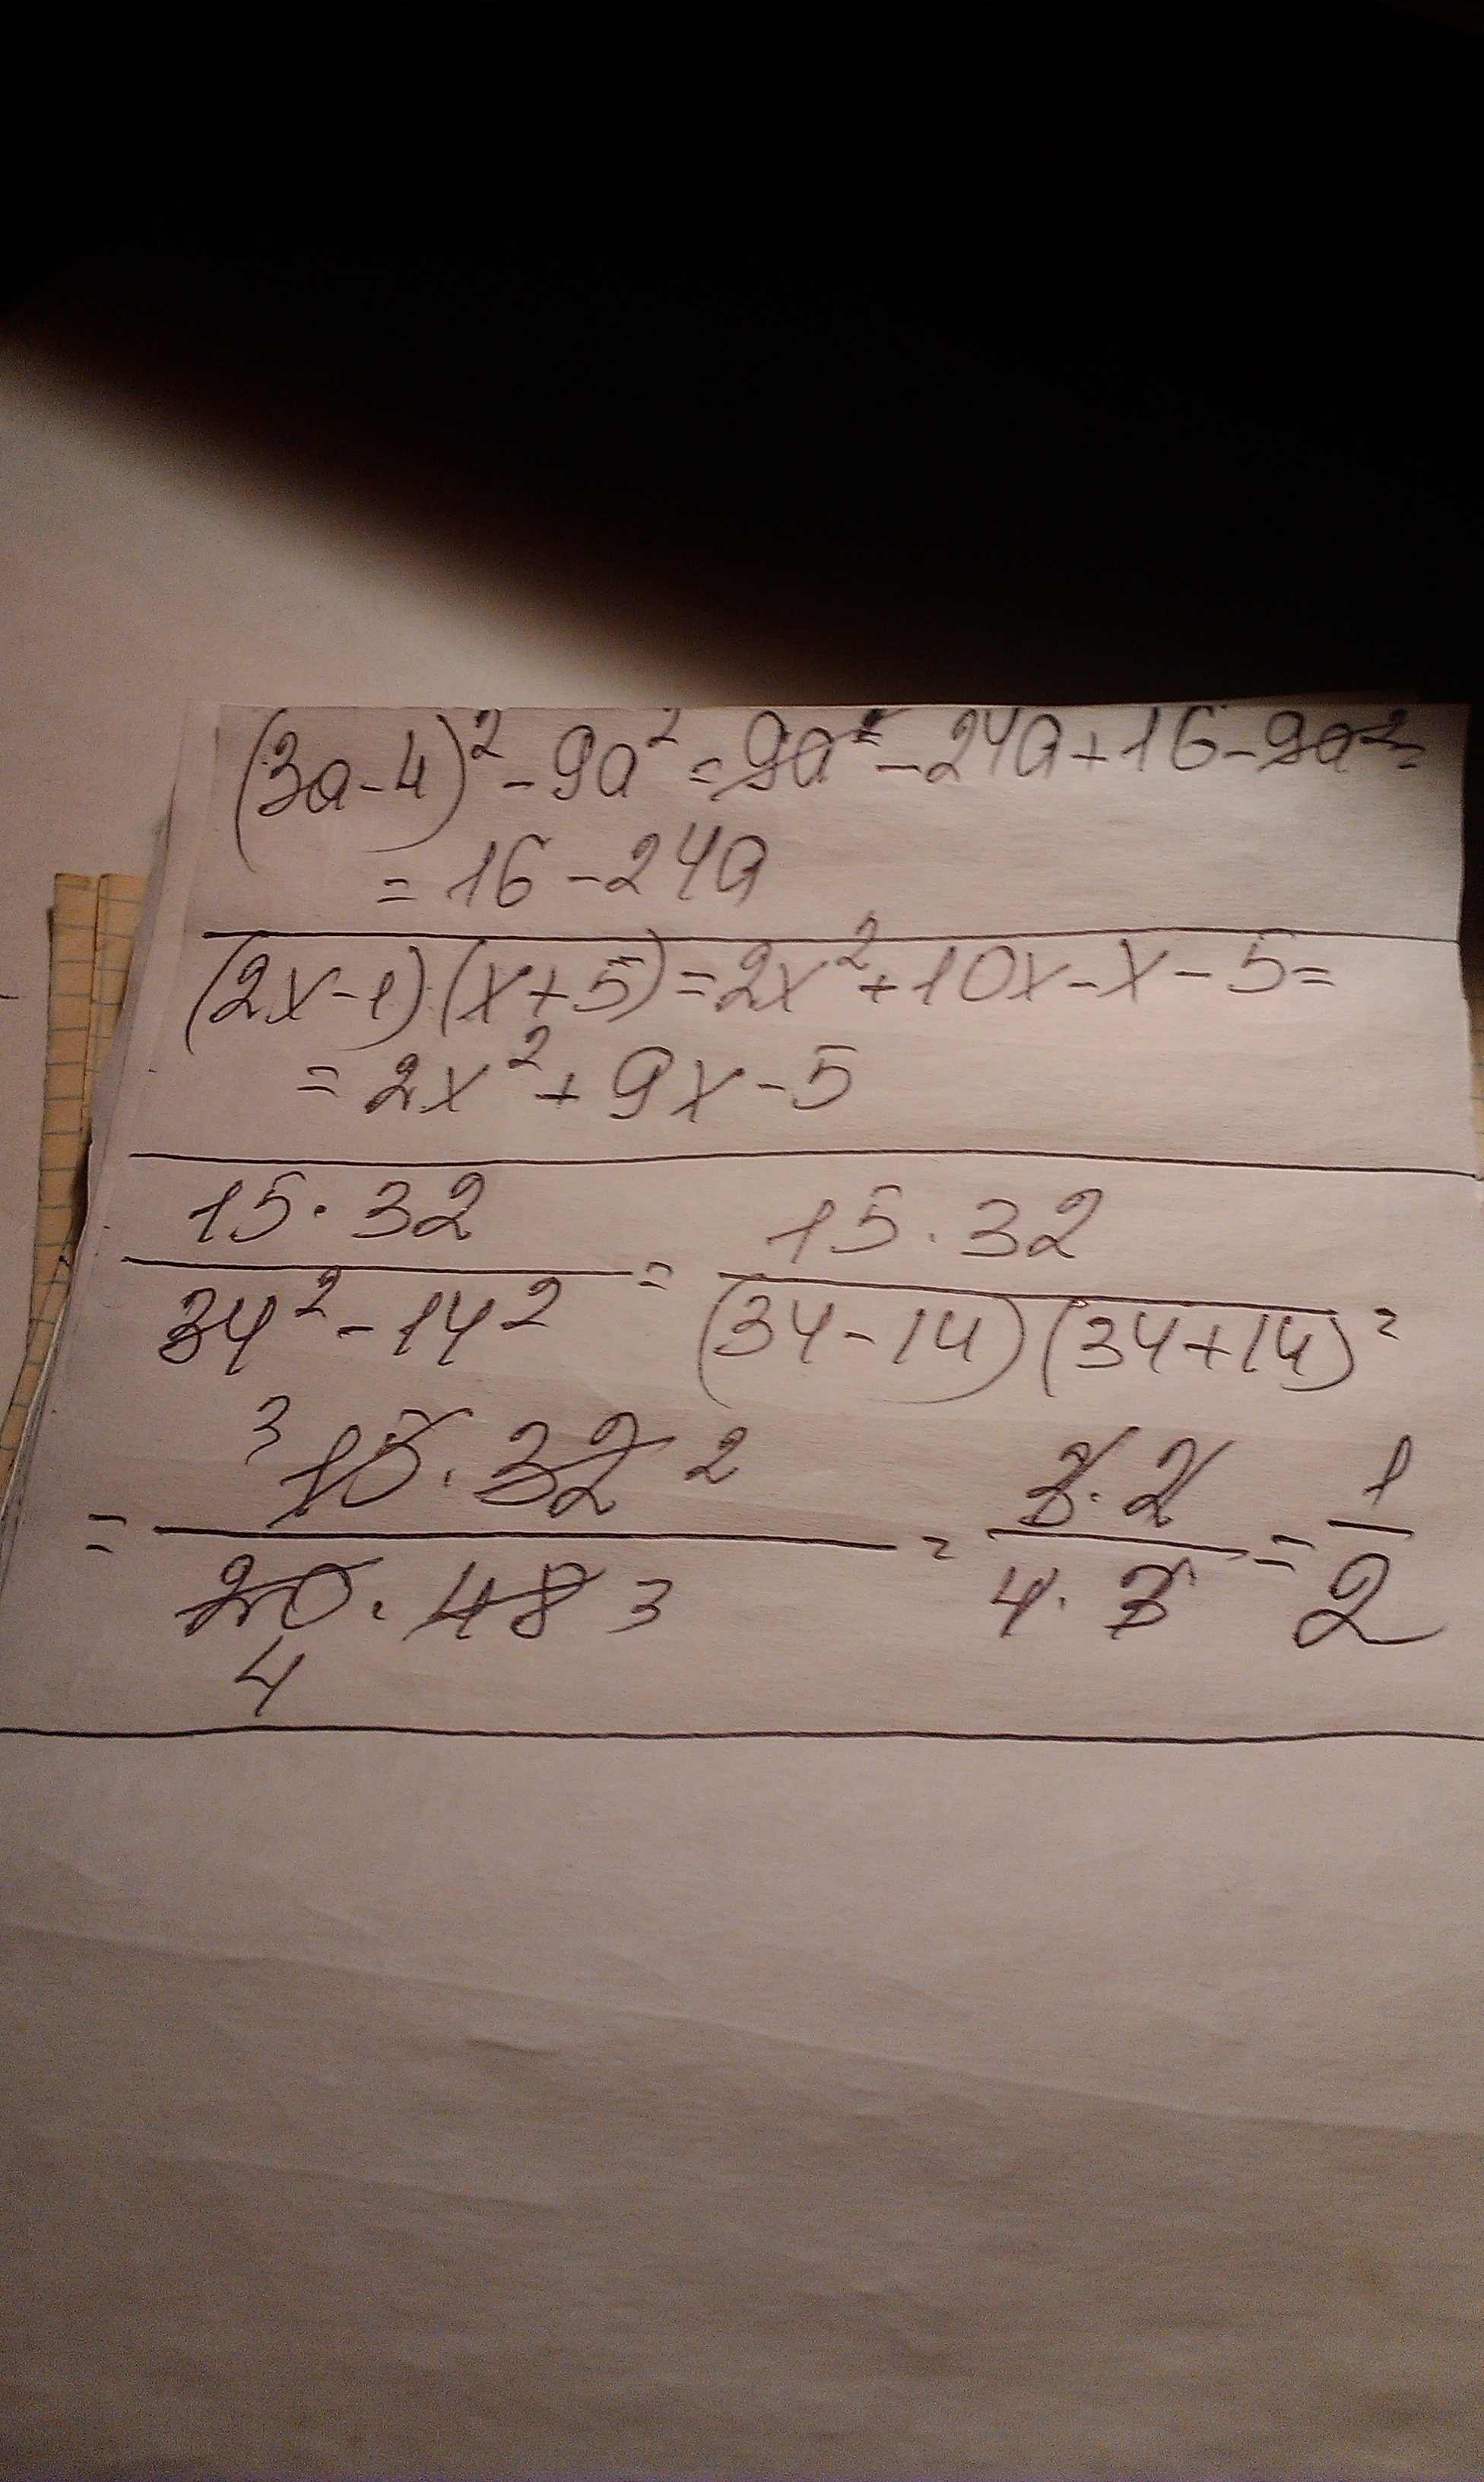 (3a-4)² - 9a² = 9a² - 24a + 16 - 9a² =
= 16 - 24a
(2x-1)(x+5) = 2x² + 10x - x - 5 =
= 2x² + 9x - 5
15·32 / 34² - 14² = 15·32 / (34-14)(34+14) =
= 3 15·32 2 / 20·48 3 4 = 3·2 / 4·3 = 1/2